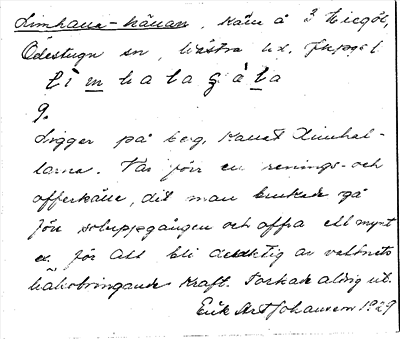 Limhalla-källan, källa å Tiegöl,
Ödestugu sn, Västra hd, Jkpgs l
l i m h a l a g å l a
9.
Ligger på berg, kallat Limhal-
larna. Var förr en renings- och
offerkälla, dit man brukade gå
före soluppgången och offra ett mynt
för att bli delaktig av vattnets
hälsobringande kraft. Torkade aldrig ut.
1929